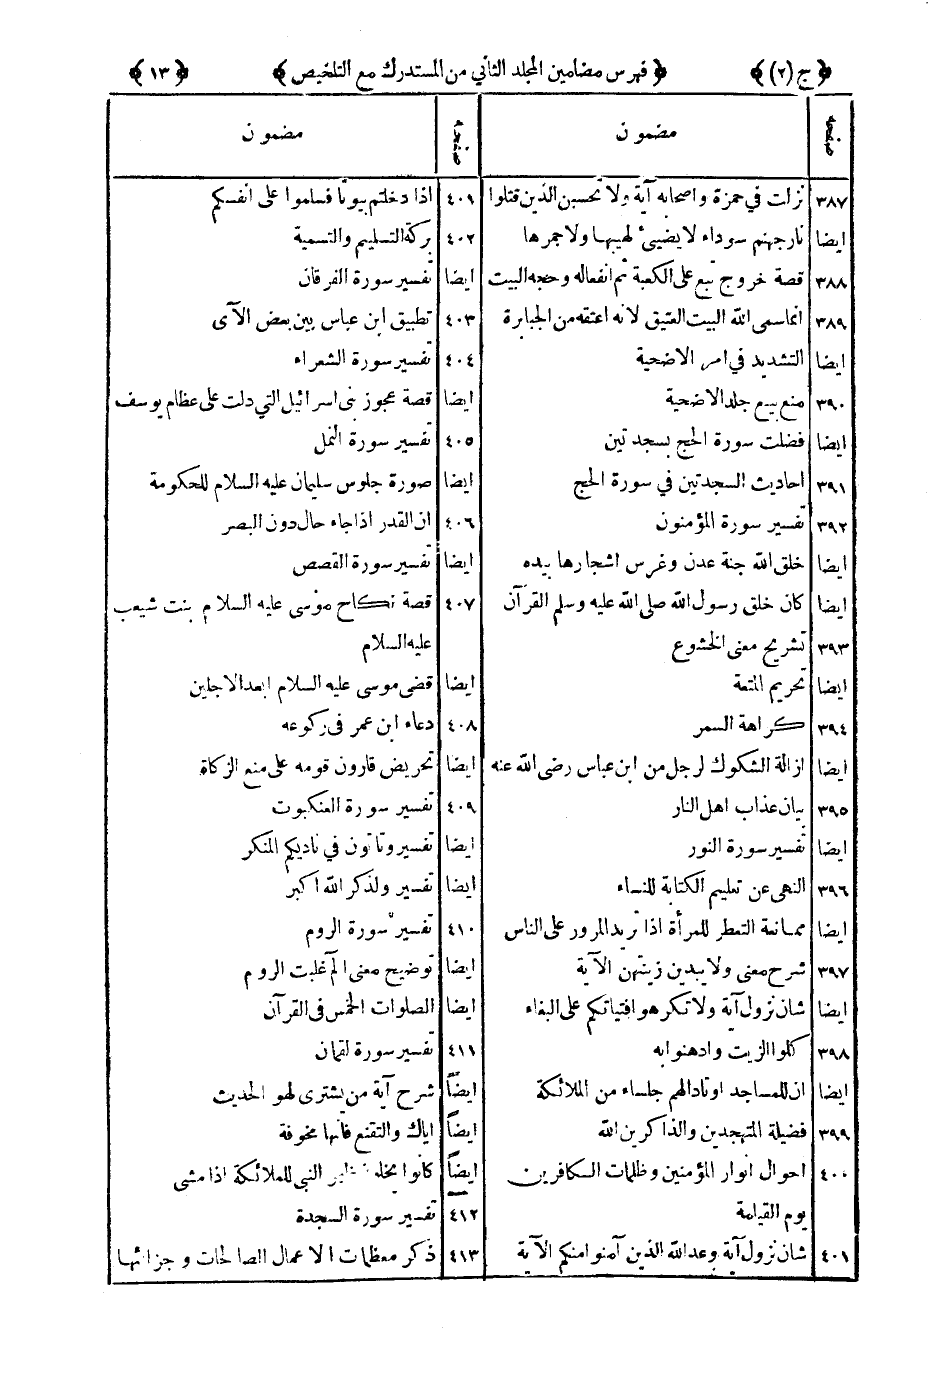 ﴿ ج (٢) ﴾ ﴿ فهرس مضامين المجلد الثاني من المستدرك مع التلخيص ﴾ ﴿ ١٣ ﴾
صفحه مضمون
٣٨٧ نزلت في حمزة واصحابه آية ولا تحسبن الذين قتلوا
ايضا نارجهنم سوداء لا يضيئ لهيبها ولا جمرها
٣٨٨ قصة خروج تبع على الكعبة ثم انفعاله وحجه البيت
٣٨٩ انماسمى الله البيت العتيق لانه اعتقه من الجبابرة
ايضا التشديد في امر الاضحية
٣٩٠ منع بيع جلد الاضحية
ايضا فضلت سورة الحج بسجدتين
٣٩١ احاديث السجدتين في سورة الحج
٣٩٢ تفسير سورة المؤمنون
ايضا خلق الله جنة عدن وغرس اشجارها بيده
ايضا كان خلق رسول الله صلى الله عليه وسلم القرآن
٣٩٣ تشريح معنى الخشوع
ايضا تحريم المتعة
٣٩٤ كراهة السمر
ايضا ازالة الشكوك لرجل من ابن عباس رضى الله عنه
٣٩٥ بيان عذاب اهل النار
ايضا تفسير سورة النور
٣٩٦ النهى عن تعليم الكتابة للنساء
ايضا ممانعة التعطر للمرأة اذا تريد المرور على الناس
٣٩٧ شرح معنى ولا يبدين زينتهن الآية
ايضا شان نزول آية ولا تكرهوا فتياتكم على البغاء
٣٩٨ كلوا الزيت وادهنوا به
ايضا ان للمساجد اوتادا لهم جلساء من الملائكة
٣٩٩ فضيلة المتهجدين والذاكرين الله
٤٠٠ احوال انوار المؤمنين وظلمات الكافرين
يوم القيامة
٤٠١ شان نزول آية وعد الله الذين آمنوا منكم الآية
صفحه مضمون
٤٠١ اذا دخلتم بيوتا فسلموا على انفسكم
٤٠٢ بركة التسليم والتسمية
ايضا تفسير سورة الفرقان
٤٠٣ تطبيق ابن عباس بين بعض الآى
٤٠٤ تفسير سورة الشعراء
ايضا قصة عجوز بنى اسرائيل التي دلت على عظام يوسف
٤٠٥ تفسير سورة النمل
ايضا صورة جلوس سليمان عليه السلام للحكومة
٤٠٦ ان القدر اذا جاء حال دون البصر
ايضا تفسير سورة القصص
٤٠٧ قصة نكاح موسى عليه السلام بنت شعيب
عليه السلام
ايضا قضى موسى عليه السلام ابعد الاجلين
٤٠٨ دعاء ابن عمر فى ركوعه
ايضا تحريض قارون قومه على منع الزكاة
٤٠٩ تفسير سورة العنكبوت
ايضا تفسير وتاتون في ناديكم المنكر
ايضا تفسير ولذكر الله اكبر
٤١٠ تفسير سورة الروم
ايضا توضيح معنى الم غلبت الروم
ايضا الصلوات الخمس فى القرآن
٤١١ تفسير سورة لقمان
ايضاً شرح آية من يشترى لهو الحديث
ايضاً اياك والتقنع فانها مخوفة
ايضاً كانوا النبي للملائكة اذا مشى
٤١٢ تفسير سورة السجدة
٤١٣ ذكر معظمات الاعمال الصالحات وجزائها